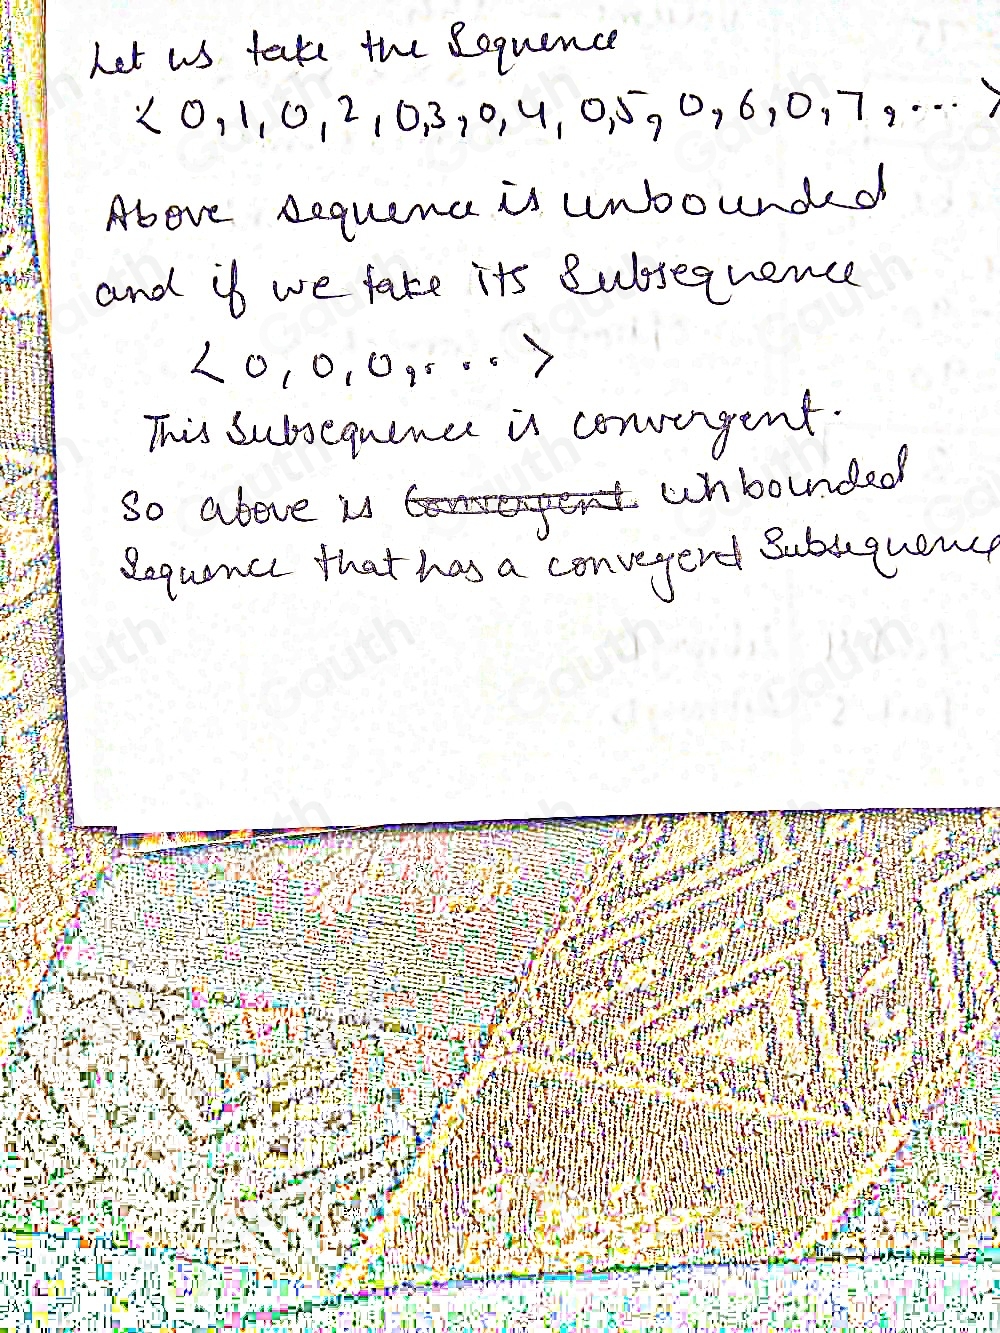 Let us take the Sequence
< 0, 1, 0, 2, 0, 3, 0, 4, 0, 5, 0, 6, 0, 7, ... >
Above sequence is unbounded
and if we take its Subsequence
< 0, 0, 0, ... >
This Subsequence is convergent.
So above is convergent unbounded
Sequence that has a convegent Subsequence